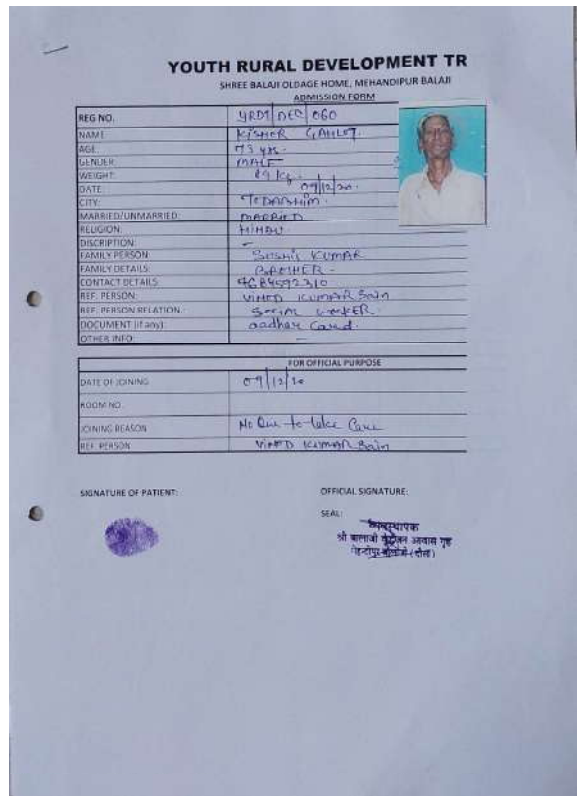 YOUTH RURAL DEVELOPMENT TR
SHREE BALAJI OLDAGE HOME, MEHANDIPUR BALAJI
ADMISSION FORM
REG NO. YRDT/DEC/060
NAME KISHOR GAHLOT.
AGE: 73 yrs.
GENDER: MALE
WEIGHT: kg.
DATE: 09/12/20.
CITY: TODABHIM.
MARRIED/UNMARRIED: MARRIED
RELIGION: HINDU
DISCRIPTION: –
FAMILY PERSON: SUSHIL KUMAR
FAMILY DETAILS: BROTHER -
CONTACT DETAILS:
REF. PERSON: VINOD KUMAR Sain
REF. PERSON RELATION.: Social WORKER.
DOCUMENT (if any): aadhar Card.
OTHER INFO: –
FOR OFFICIAL PURPOSE
DATE OF JOINING 09/12/20
ROOM NO.
JOINING REASON No One to take Care
REF. PERSON VINOD KUMAR Sain
SIGNATURE OF PATIENT: OFFICIAL SIGNATURE:
SEAL:
व्यवस्थापक
श्री बालाजी आवास गृह